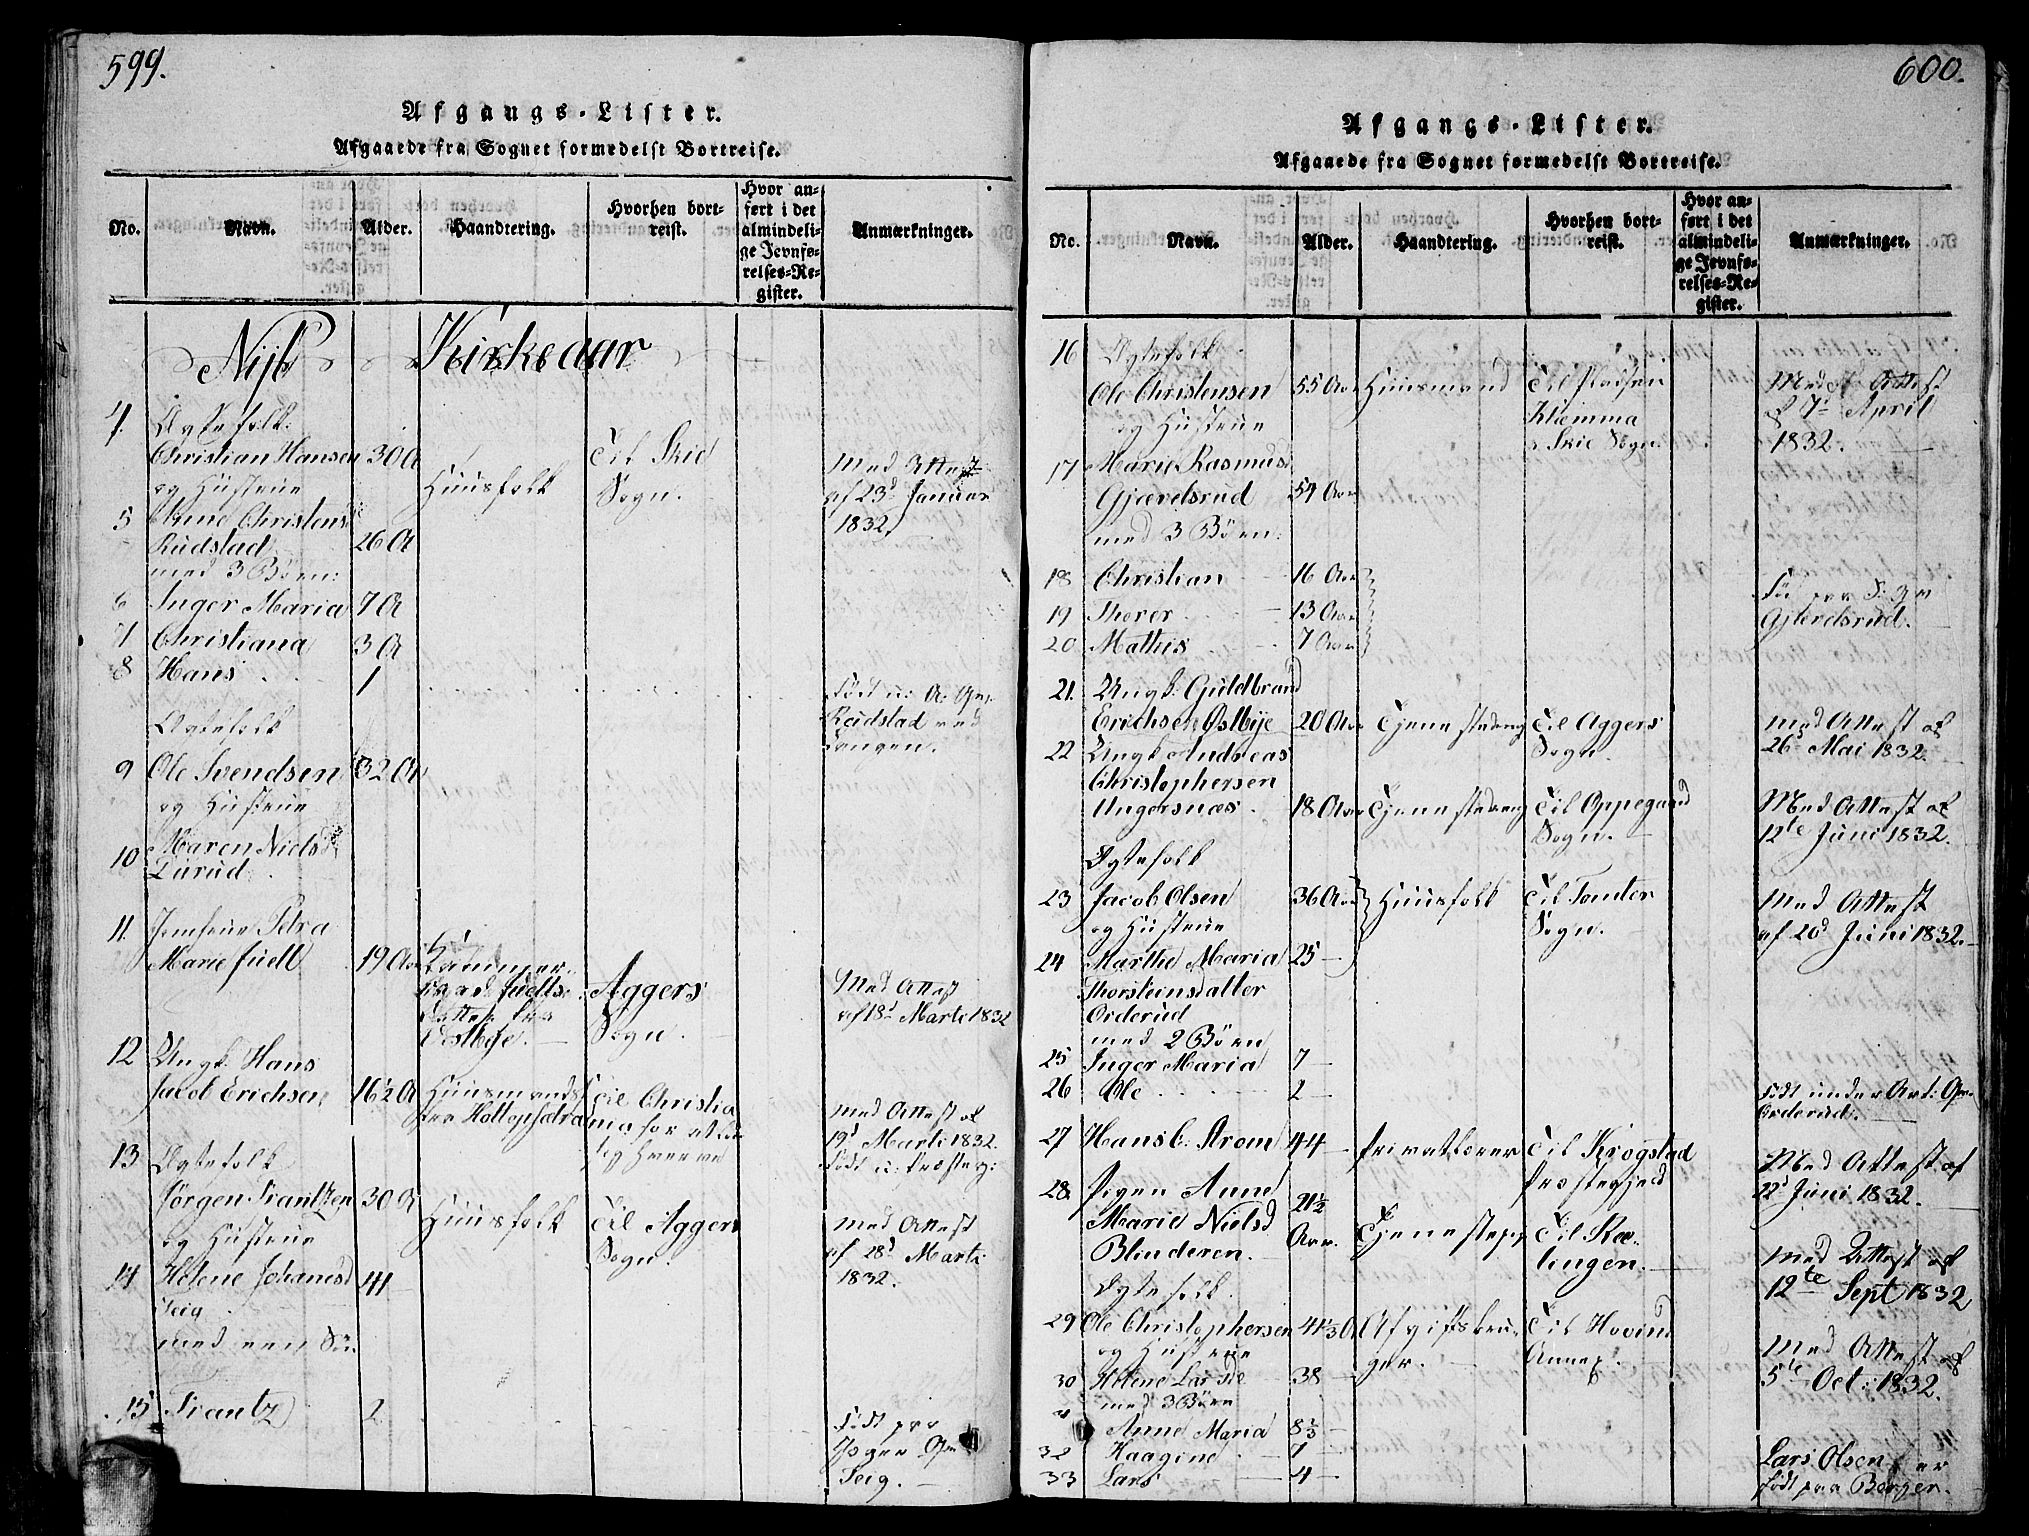 599.
Afgangs-Lister.
Afgaaede fra Sognet formedelst Bortreise.
No. Navn. Alder. Haandtering. Hvorhen bortreist. Hvor anført i det almindelige Jevnførelses-Register. Anmærkninger.
Nijt Kirkeaar
4. Ægtefolk.
Christian Hansen 30 A Huusfolk Til Skie Sogn. Med Attest af 23d Januar 1832
og Hustrue
5 Anne Christensd
Rudstad 26 A
med 3 Børn:
6 Inger Maria 7 A
7 Christiana 3 A
8 Hans 1 Født u: A. Gm. Rudstad ved Langen.
Ægtefolk
9 Ole Svendsen 32 A
og Hustrue
10 Maren Nielsd
Durud
11. Jomfrue Petra
Marie Juell 19 Aar Kammerraad Juells Datter fra Vestbye. Aggers Sogn. Med Attest af 18d Marti 1832
12 Ungk. Hans
Jacob Erichsen 16½ A Huusmands Til Christia Med Attest af 19d Marti 1832.
Født u: Præsteg:
13 Ægtefolk
Jørgen Frantzen 30 A Huusfolk Til Aggers Sogn. Med Attest af 28d Marti 1832.
og Hustrue
14 Helene Johanesd 41
Teig
med een Søn
15 Frantz 2 Født paa
Teig.
600.
Afgangs-Lister.
Afgaaede fra Sognet formedelst Bortreise.
No. Navn. Alder. Haandtering. Hvorhen bortreist. Hvor anført i det almindelige Jevnførelses-Register. Anmærkninger.
16 Ægtefolk
Ole Christensen 55 Aar Huusmand Til Pladsen Klemma i Skie Sogn. Med Attest af 7d April 1832.
og Hustrue
17 Marie Rasmusd
Gjævelsrud 54 Aar
med 3 Børn:
18 Christian 16 Aar
19 Thorer 13 Aar
20 Mathis 7 Aar
Gjævelsrud.
21. Ungk: Guldbrand
Erichsen Østbye 20 Aar Tjenestedreng Til Aggers Sogn. Med Attest af 26d Mai 1832.
22 Ungk Andreas
Christophersen
Ungersnæs. 18 Aar Tjenestedreng Til Oppegaard Sogn. Med Attest af 12te Juni 1832.
Ægtefolk
23 Jacob Olsen 36 Aar Huusfolk Til Tomter Sogn. Med Attest af 20d Juni 1832.
og Hustrue
24 Marthe Maria 25
Thorsteinsdatter
Orderud
med 2 Børn
25 Inger Maria 7
26 Ole 2 Født under Art: Gm. Orderud.
27 Hans C. Strøm 44 Privatlærer Til Krogstad Præstegjeld Med Attest af 12d Juni 1832.
28. Pigen Anne
Marie Nielsd 21½ Aar. Tjenestepige Til Kte-
Blinderen. lingen. Med Attest af 12te Sept 1832
Ægtefolk.
29 Ole Christophersen 41⅓ A Afgiftsbruger. Til Hovind Annex. Med Attest af 5te Oct: 1832.
og Hustrue
30 Helene Larsde 38
med 3 Børn
Anne Maria 8⅓
32 Haagine 7
33 Lars 4 Lars Olsen er født paa Berger.